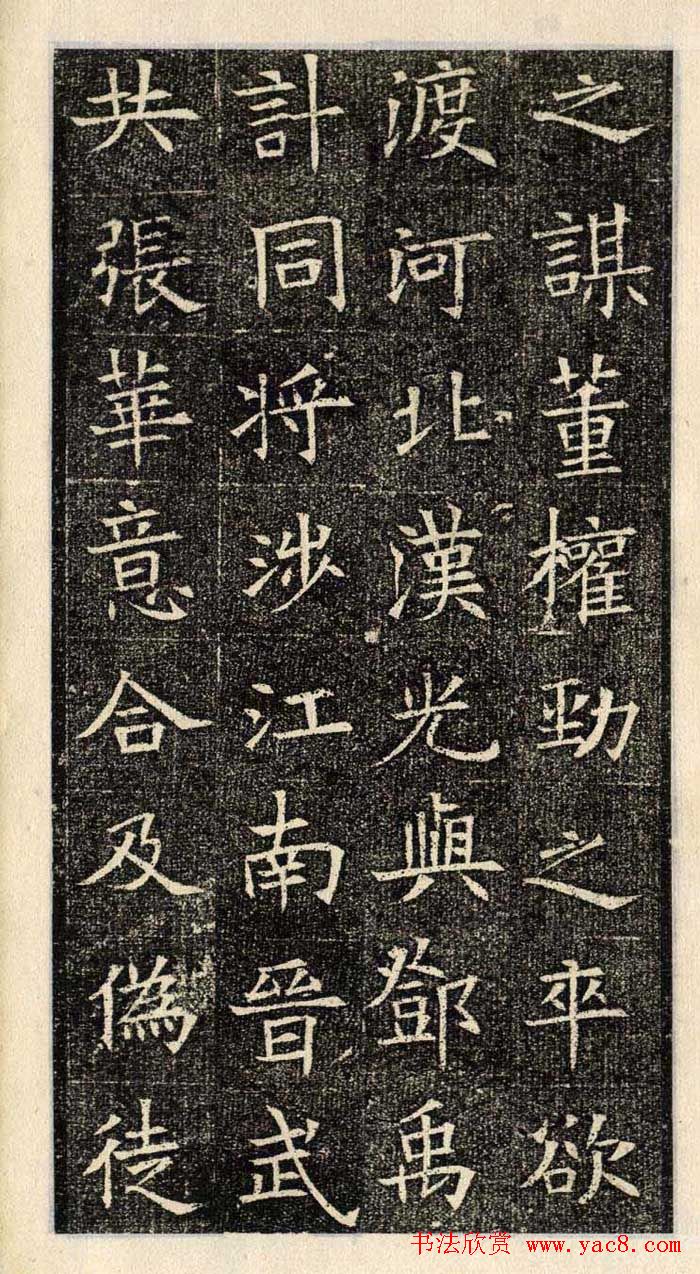 之謀董權勁之卒欲
渡河北漢光與鄧禹
計同将涉江南晉武
共張華意合及偽徒
书法欣赏 www.yac8.com